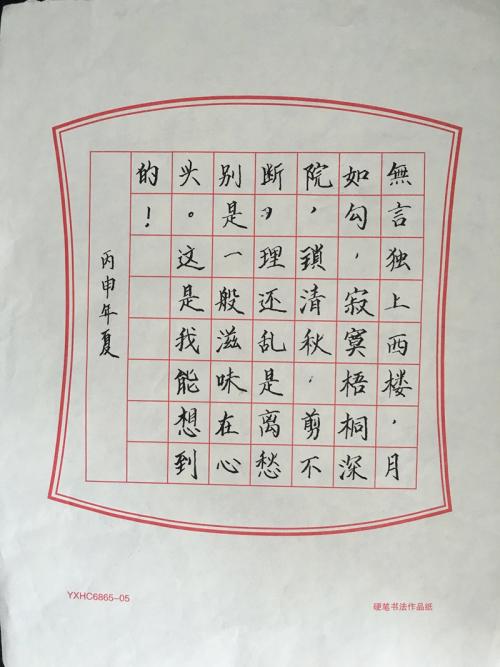 無言独上西楼，月
如勾，寂寞梧桐深
院，鎖清秋．剪不
断，理还乱是离愁
别是一般滋味在心
头。这是我能想到
的！
丙申年夏
YXHC6865-05
硬笔书法作品纸